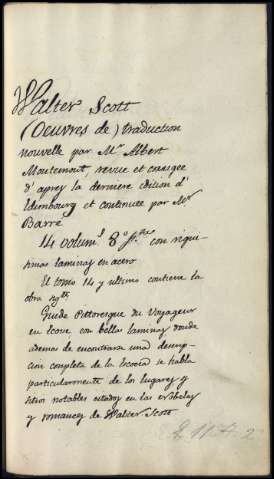 Walter Scott
(Oeuvres de) traduction
nouvelle par Mr Albert
Montemont, revue et corrigee
d'apres la derniere edition d'
Edimbourg et continuée par Mr
Barré
14 volums 8º con riqui-
simas laminas en acero
El tomo 14 y ultimo contiene la
obra sgte
Guide Pittoresque du Voyageur
en Ecosse con bellas laminas donde
ademas de encontrarse una descrip-
cion completa de la Escocia se habla
particularmente de los lugares y
sitios notables citados en las
y romances de Walter Scott